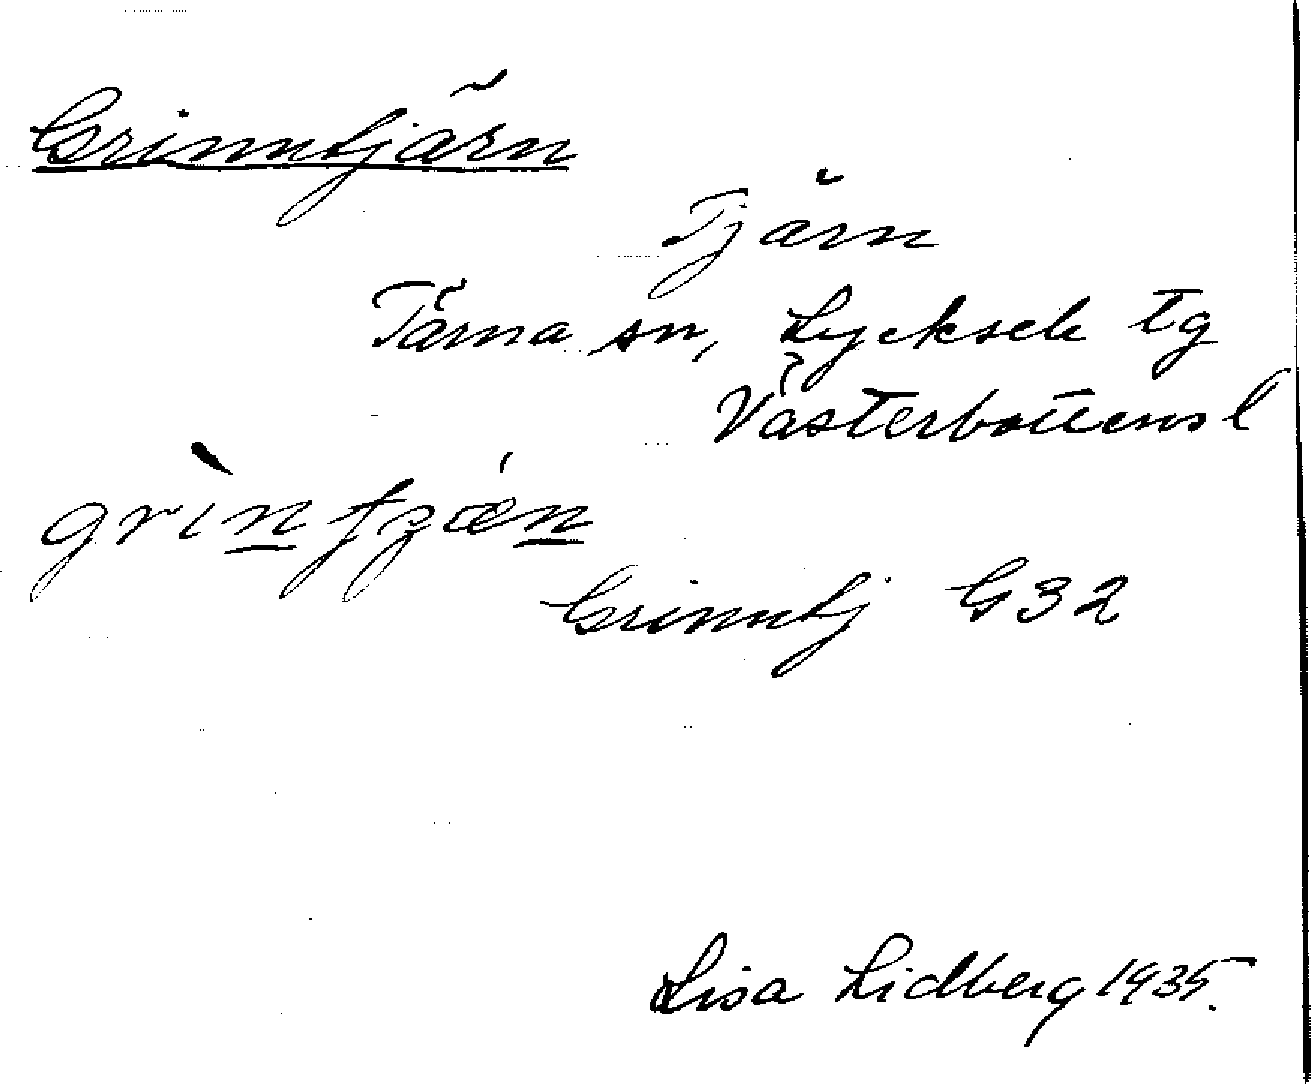 Grinntjärn
Tjärn
Tärna sn, Lycksele tg
Västerbottens l
grìn̲tʒǽn̲
Grinntj G32
Lisa Lidberg 1935.